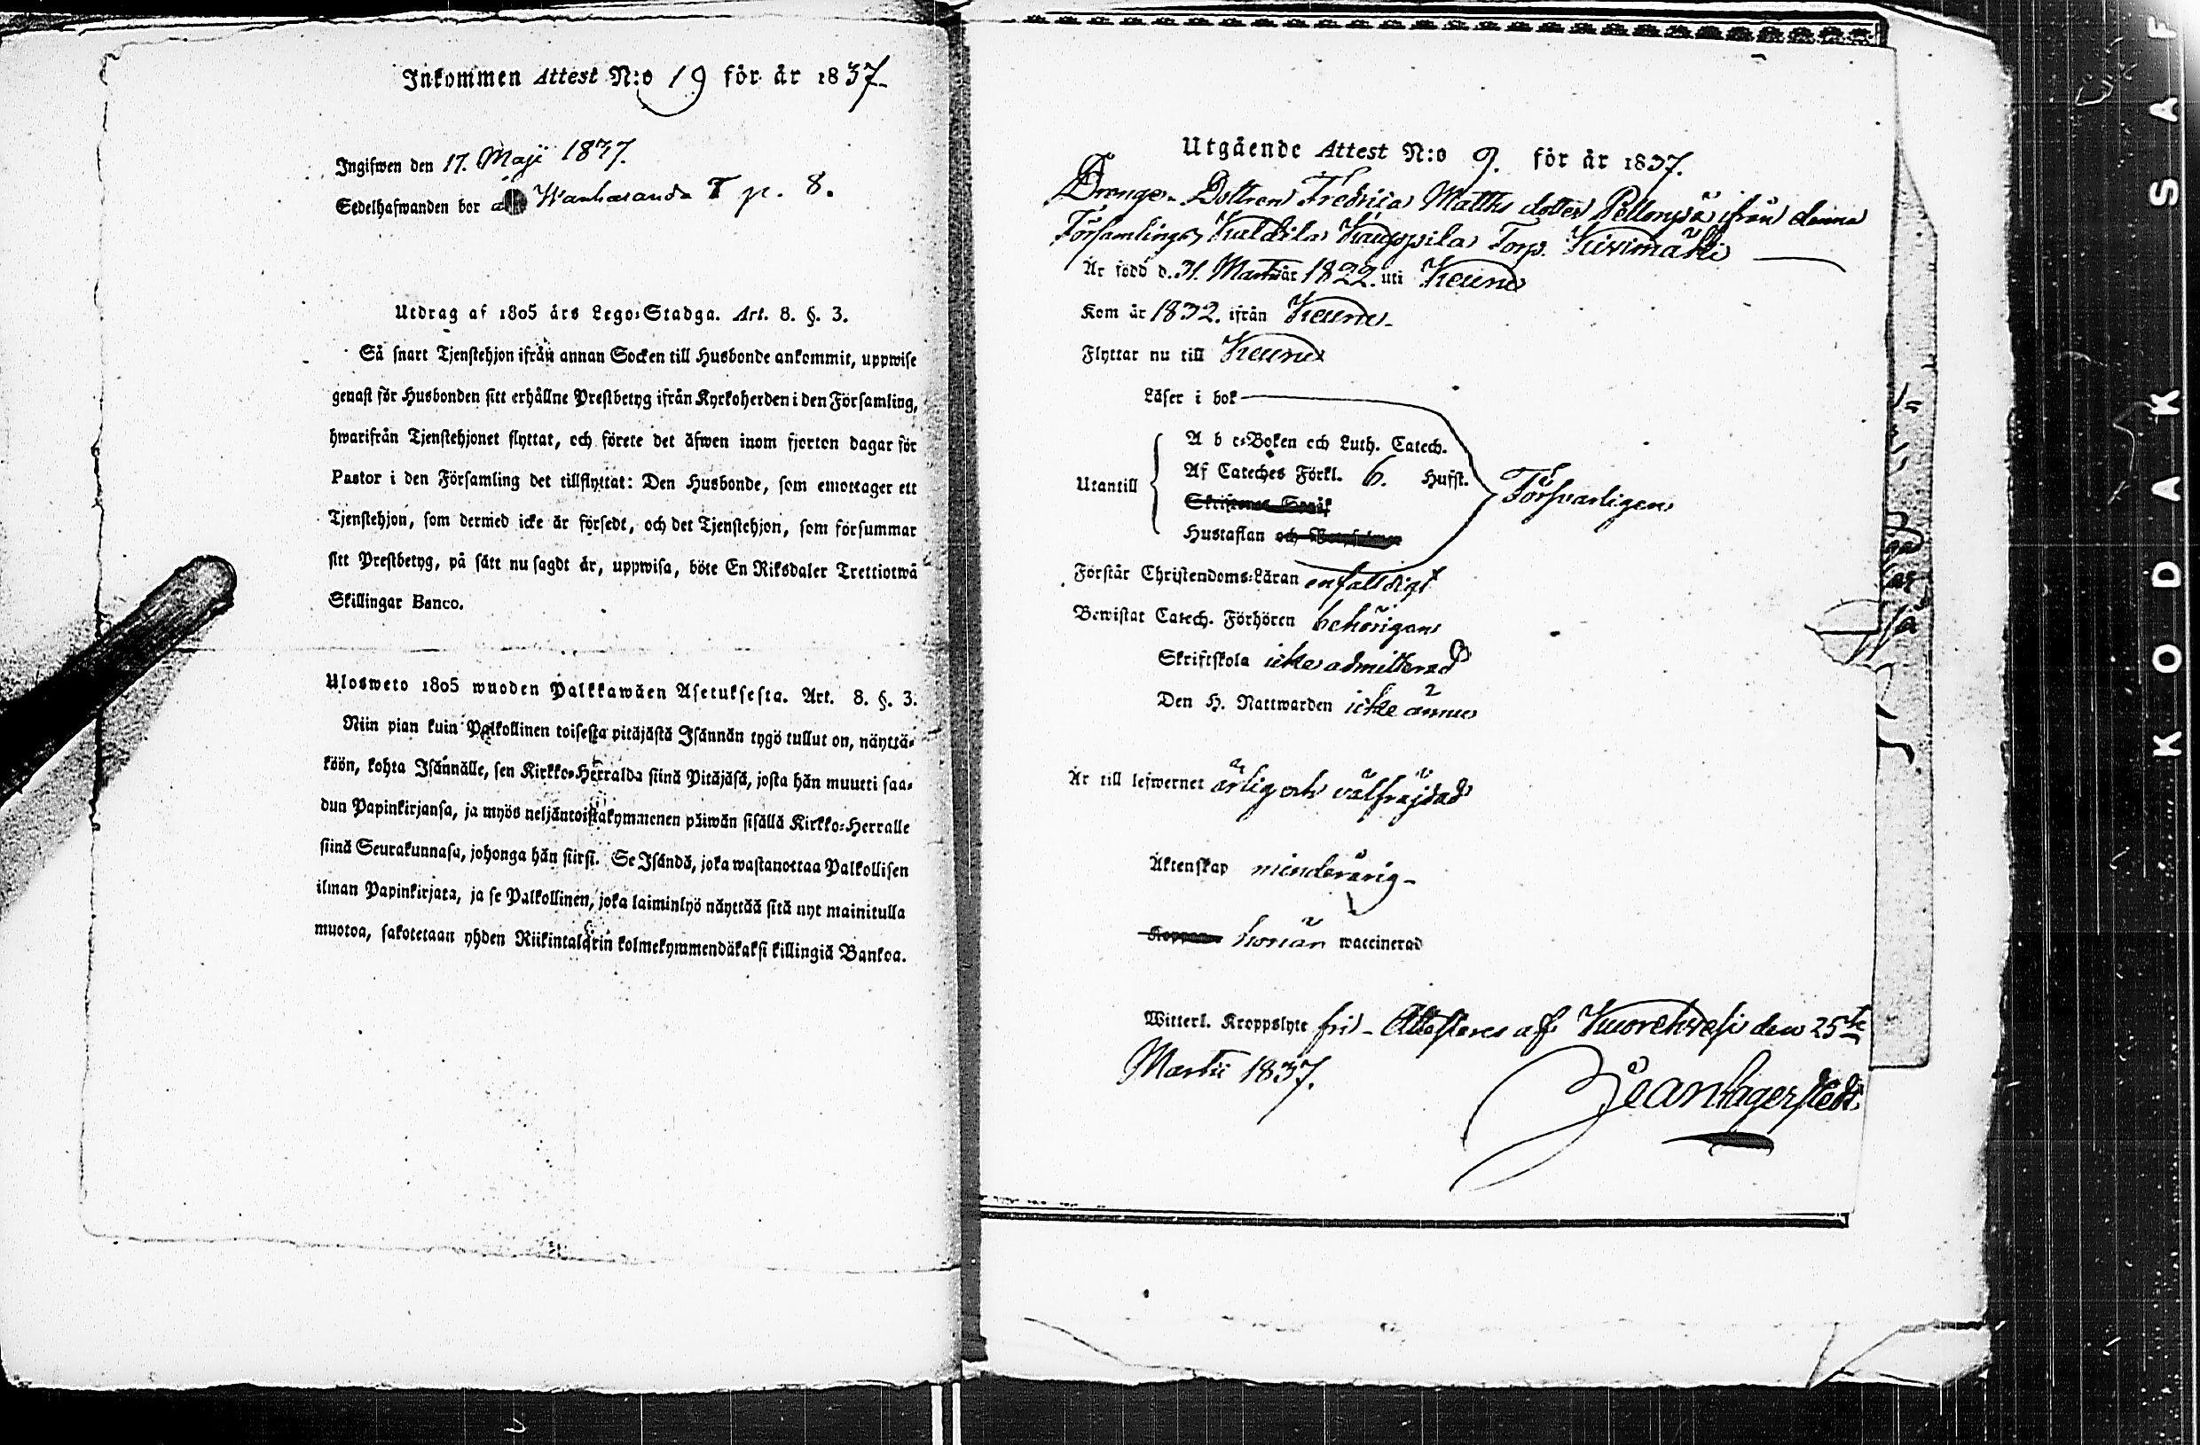 Inkommen Attest N:o 19 för år 1837
Ingifwen den 17. Maji 1837.
Sedelhafwanden bor Wanharanda T p. 8.
Utdrag af 1805 års Lego-Stadga. Art. 8. §. 3.
Så snart Tjenstehjon ifrån annan Socken till Husbonde ankommit, uppwise
genast för Husbonden sitt erhållne Prestbetyg ifrån Kyrkoherden i den Församling,
hwarifrån Tjenstehjonet flyttat, och förete det äfwen inom fjorton dagar för
Pastor i den Församling det tillflyttat: Den Husbonde, som emottager ett
Tjenstehjon, som dermed icke är försedt, och det Tjenstehjon, som försummar
sitt Prestbetyg, på sätt nu sagdt är, uppwisa, böte En Riksdaler Trettiotwå
Skillingar Banco.
Ulosweto 1805 wuoden Palkkawäen Asetuksesta. Art. 8. §. 3.
Niin pian kuin Palkollinen toisesta pitäjästä Isännän tygö tullut on, näyttä-
köön, kohta Isännälle, sen Kirkko-Herralda siinä Pitäjäsä, josta hän muutti saa-
dun Papinkirjansa, ja myös neljäntoistakymmenen päiwän sisällä Kirkko-Herralle
siinä Seurakunnasa, johonga hän siirsi. Se Isändä, joka wastanottaa Palkollisen
ilman Papinkirjata, ja se Palkollinen, joka laiminlyö näyttää sitä nyt mainitulla
muotoa, sakotetaan yhden Riikintalarin kolmekymmendäkaksi killingiä Bankoa.
Utgående Attest N:o 9. för år 1837.
Drenge-Dottren Fredrica Matths dotter Pellonpää ifrån denna
Församlings Kaldila Kauppila Torp. Kivimäki
Är född d. 31. Martii år 1822. uti Keuru
Kom år 1832. ifrån Keuru
Flyttar nu till Keuru
Läser i bok
A b c-Boken och Luth. Catech.
Utantill Af Cateches Förkl. 6. Hufst. Försvarligen
Skriftenes Språk
Hustaflan och
Förstår Christendoms-Läran enfaldigt
Bewistar Catech. Förhören behörigen
Skriftskola icke admitterad
Den H. Nattwarden icke ännu
Är till lefwernet ärlig och välfräjdad
Äktenskap minderårig
Koppor hon är waccinerad
Witterl. Kroppslyte fri - Attesteras af Kuorehvesi den 25te
Martii 1837.
Jean Lagerstedt
KODAK SAF